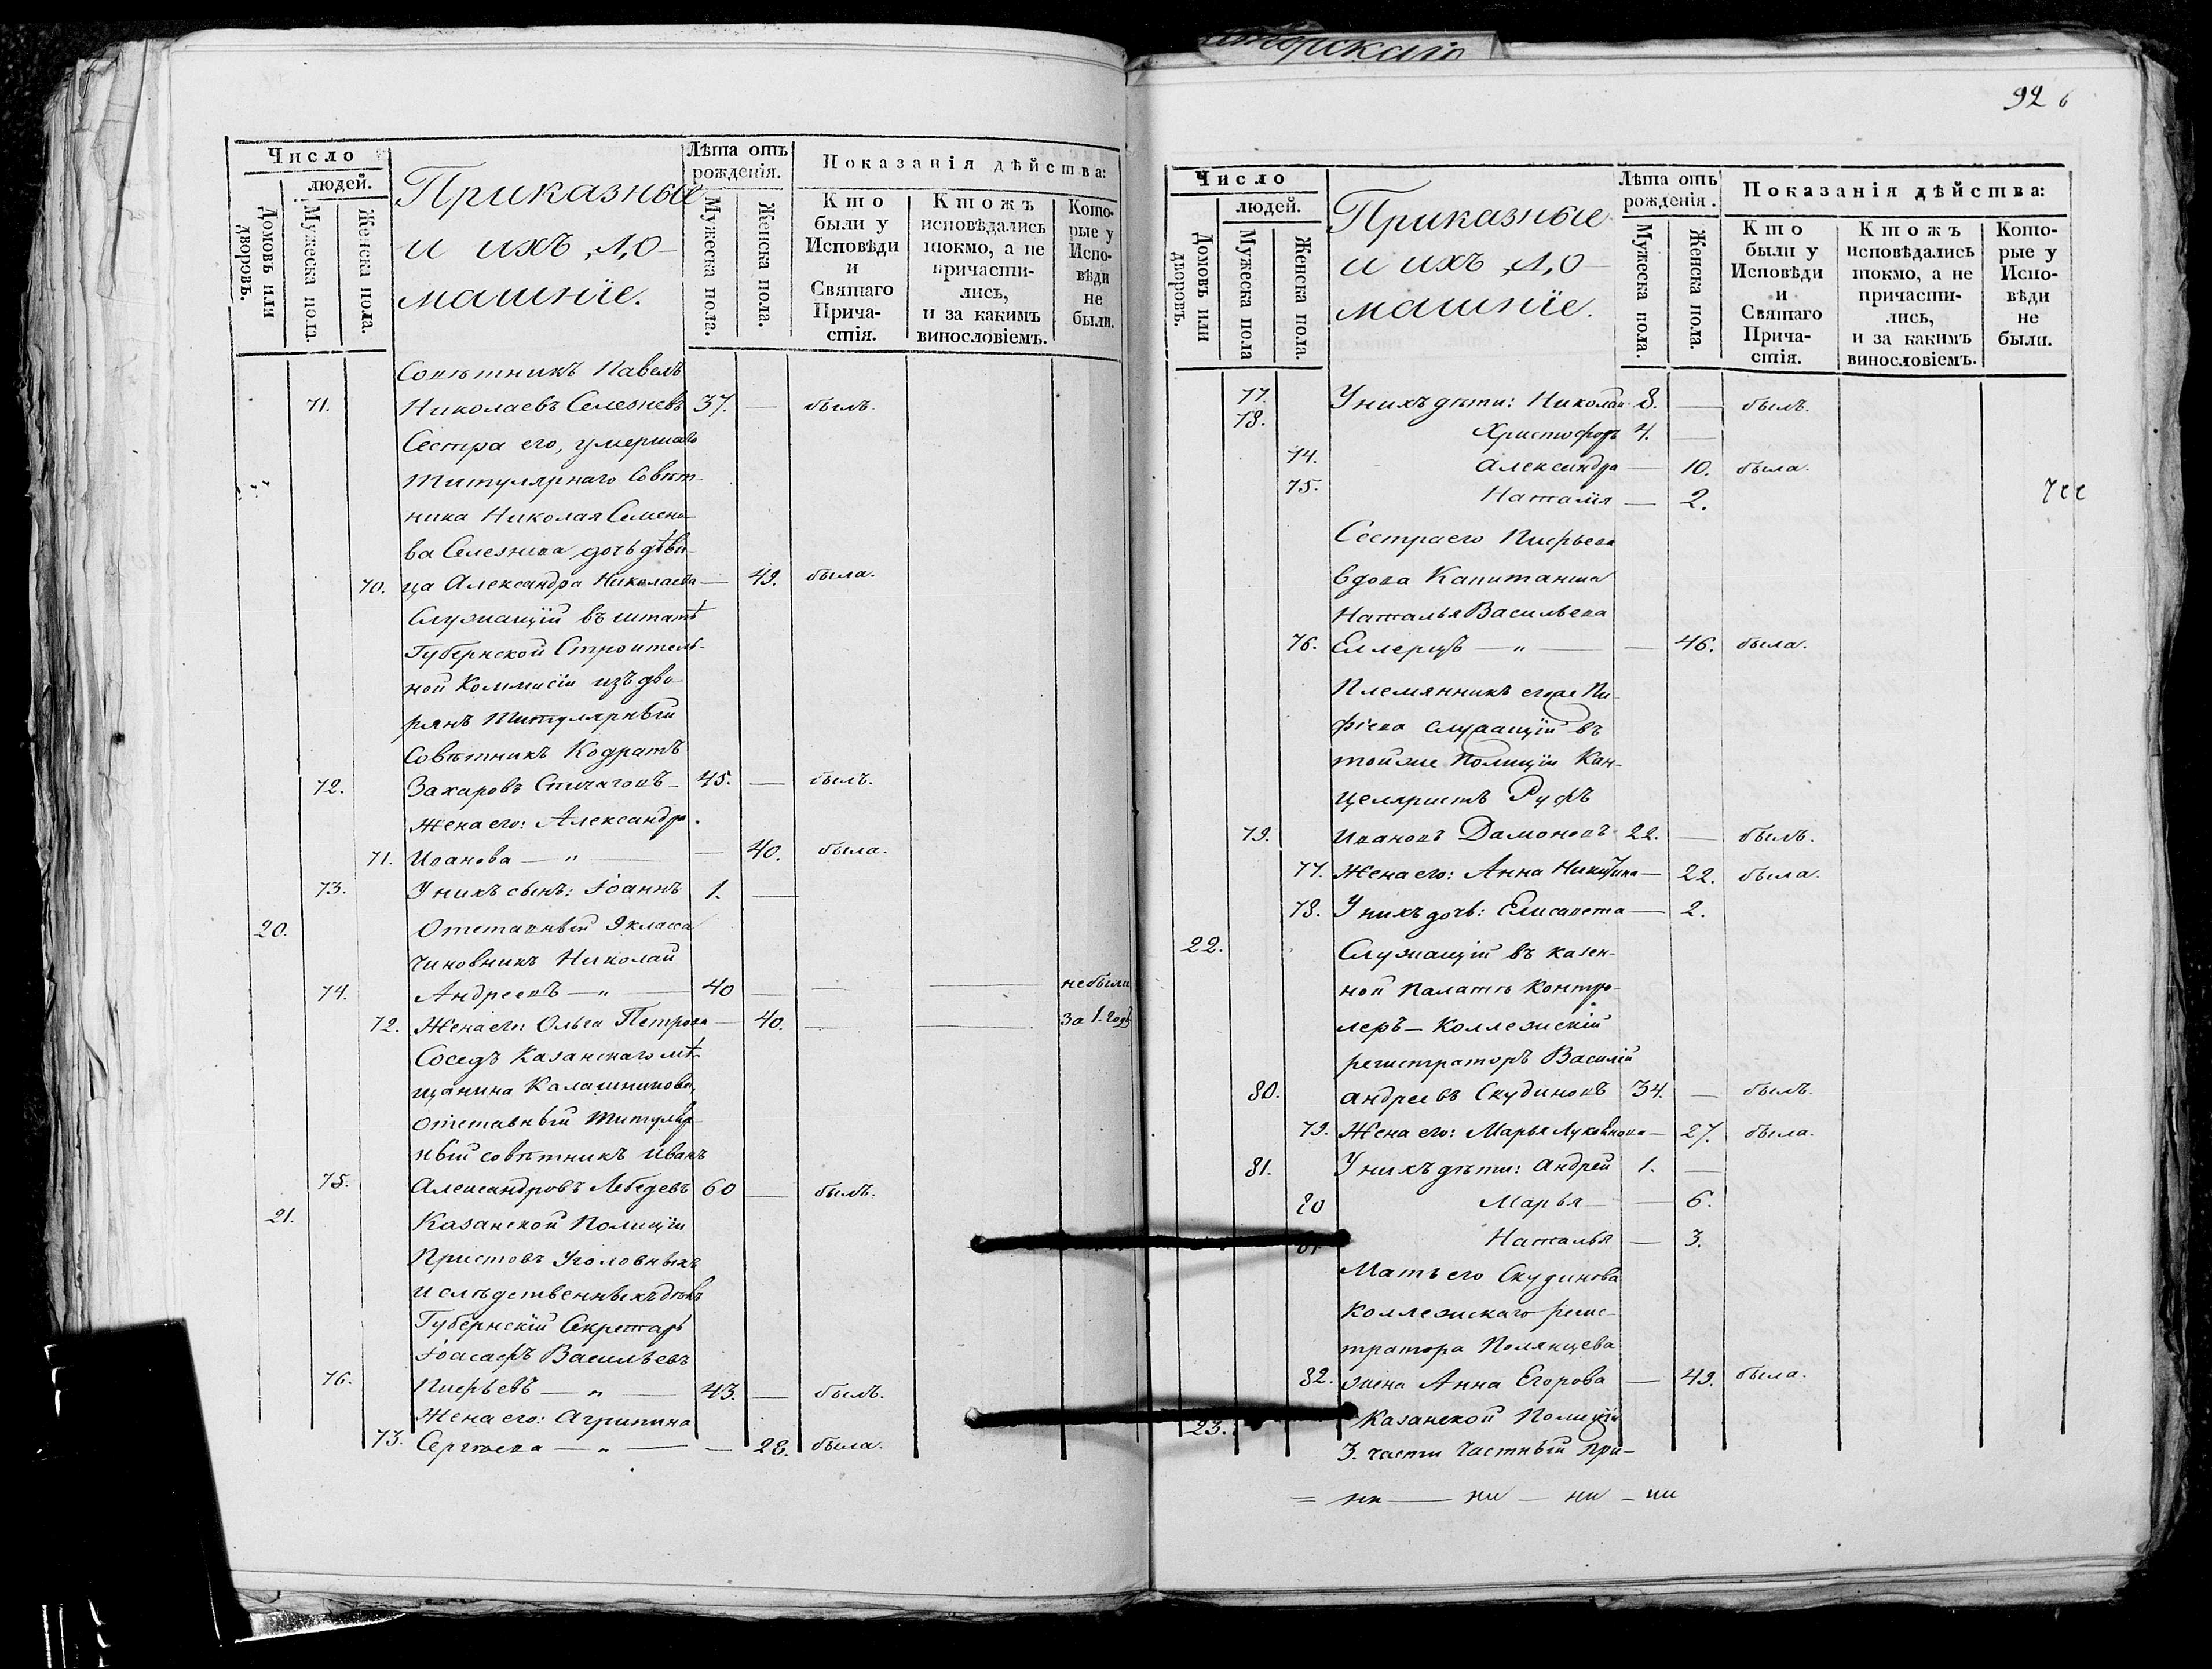 аторскаго
92
Число
людей.
Домовъ или дворовъ.
Мужеска пола
Женска пола.
Приказные
и ихъ до-
машніе.
Лѣта отъ рожденія.
Мужеска пола.
Женска пола.
Показанія дѣйства:
Кто были у Исповѣди и Святаго Прича-стія.
Ктожъ исповѣдались токмо, а не причасти-лись, и за какимъ винословіемъ.
Кото-рые у Испо-вѣди не были.
Совѣтникъ Павелъ
71. Николаевъ Селезневъ 37. — былъ.
Сестра его, умершаго
Титулярнаго Совѣт-
ника Николая Семено-
ва Селезнева дочь дѣви-
70. ца Александра Николаева — 49. была.
Служащій въ штатѣ
Губернской Строитель-
ной Коммисіи изъ дво-
рянъ Титулярный
Совѣтникъ Кодратъ
72. Захаровъ Спичаговъ — 45. — былъ.
Жена его: Александра
71. Иванова — „ — — 40. была.
73. У нихъ сынъ: Іоаннъ 1. —
20. Отставный 9 класса
Чиновникъ Николай
74. Андреевъ — „ — 40 — — — небыли
72. Жена его: Ольга Петрова — 40. — — за 1. годъ
Соседъ Казанскаго мѣ-
щанина Калашникова,
отставный Титуляр-
ный совѣтникъ Иванъ
75. Александровъ Лебедевъ 60 — былъ.
21. Казанской Полиціи
Приставъ Уголовныхъ
и слѣдственныхъ дѣлъ
Губернскій Секретарь
Іоасафъ Васильевъ
76. Пиерьевъ — „ — 43. — былъ.
Жена его: Агрипина
73. Сергѣева — „ — — 28. была.
Число
людей.
Домовъ или дворовъ.
Мужеска пола
Женска пола.
Приказные
и ихъ до-
машніе.
Лѣта отъ рожденія.
Мужеска пола.
Женска пола.
Показанія дѣйства:
Кто были у Исповѣди и Святаго Прича-стія.
Ктожъ исповѣдались токмо, а не причасти-лись, и за какимъ винословіемъ.
Кото-рые у Испо-вѣди не были.
77. У нихъ дѣти: Николай 8. — былъ.
78. Христофоръ 4. —
74. Александра — 10. была.
75. Наталія — 2.
Сестра его Пиерьева
вдова Капитанша
Наталья Васильева
76. Еллерцъ — „ — — 46. была.
Племянникъ его
служащій въ
той же Полиціи Кан-
целяристъ Руфъ
79. Ивановъ Дамоновъ 22. — былъ.
77. Жена его: Анна Никитина — 22. была.
78. У нихъ дочь: Елисавета — 2.
22. Служащій въ казен-
ной Палатѣ Контро-
леръ — Коллежскій
регистраторъ Василій
80. Андреевъ Скудиновъ 34. — былъ.
79. Жена его: Марья Лукоянова — 27. была.
81. У нихъ дѣти: Андрей 1. —
80 Марья — — 6.
81. Наталья — 3.
Мать его Скудинова
Коллежскаго регис-
тратора Полянцева
82. жена Анна Егорова — 49. была.
23. Казанской Полиціи
3. части Частный При-